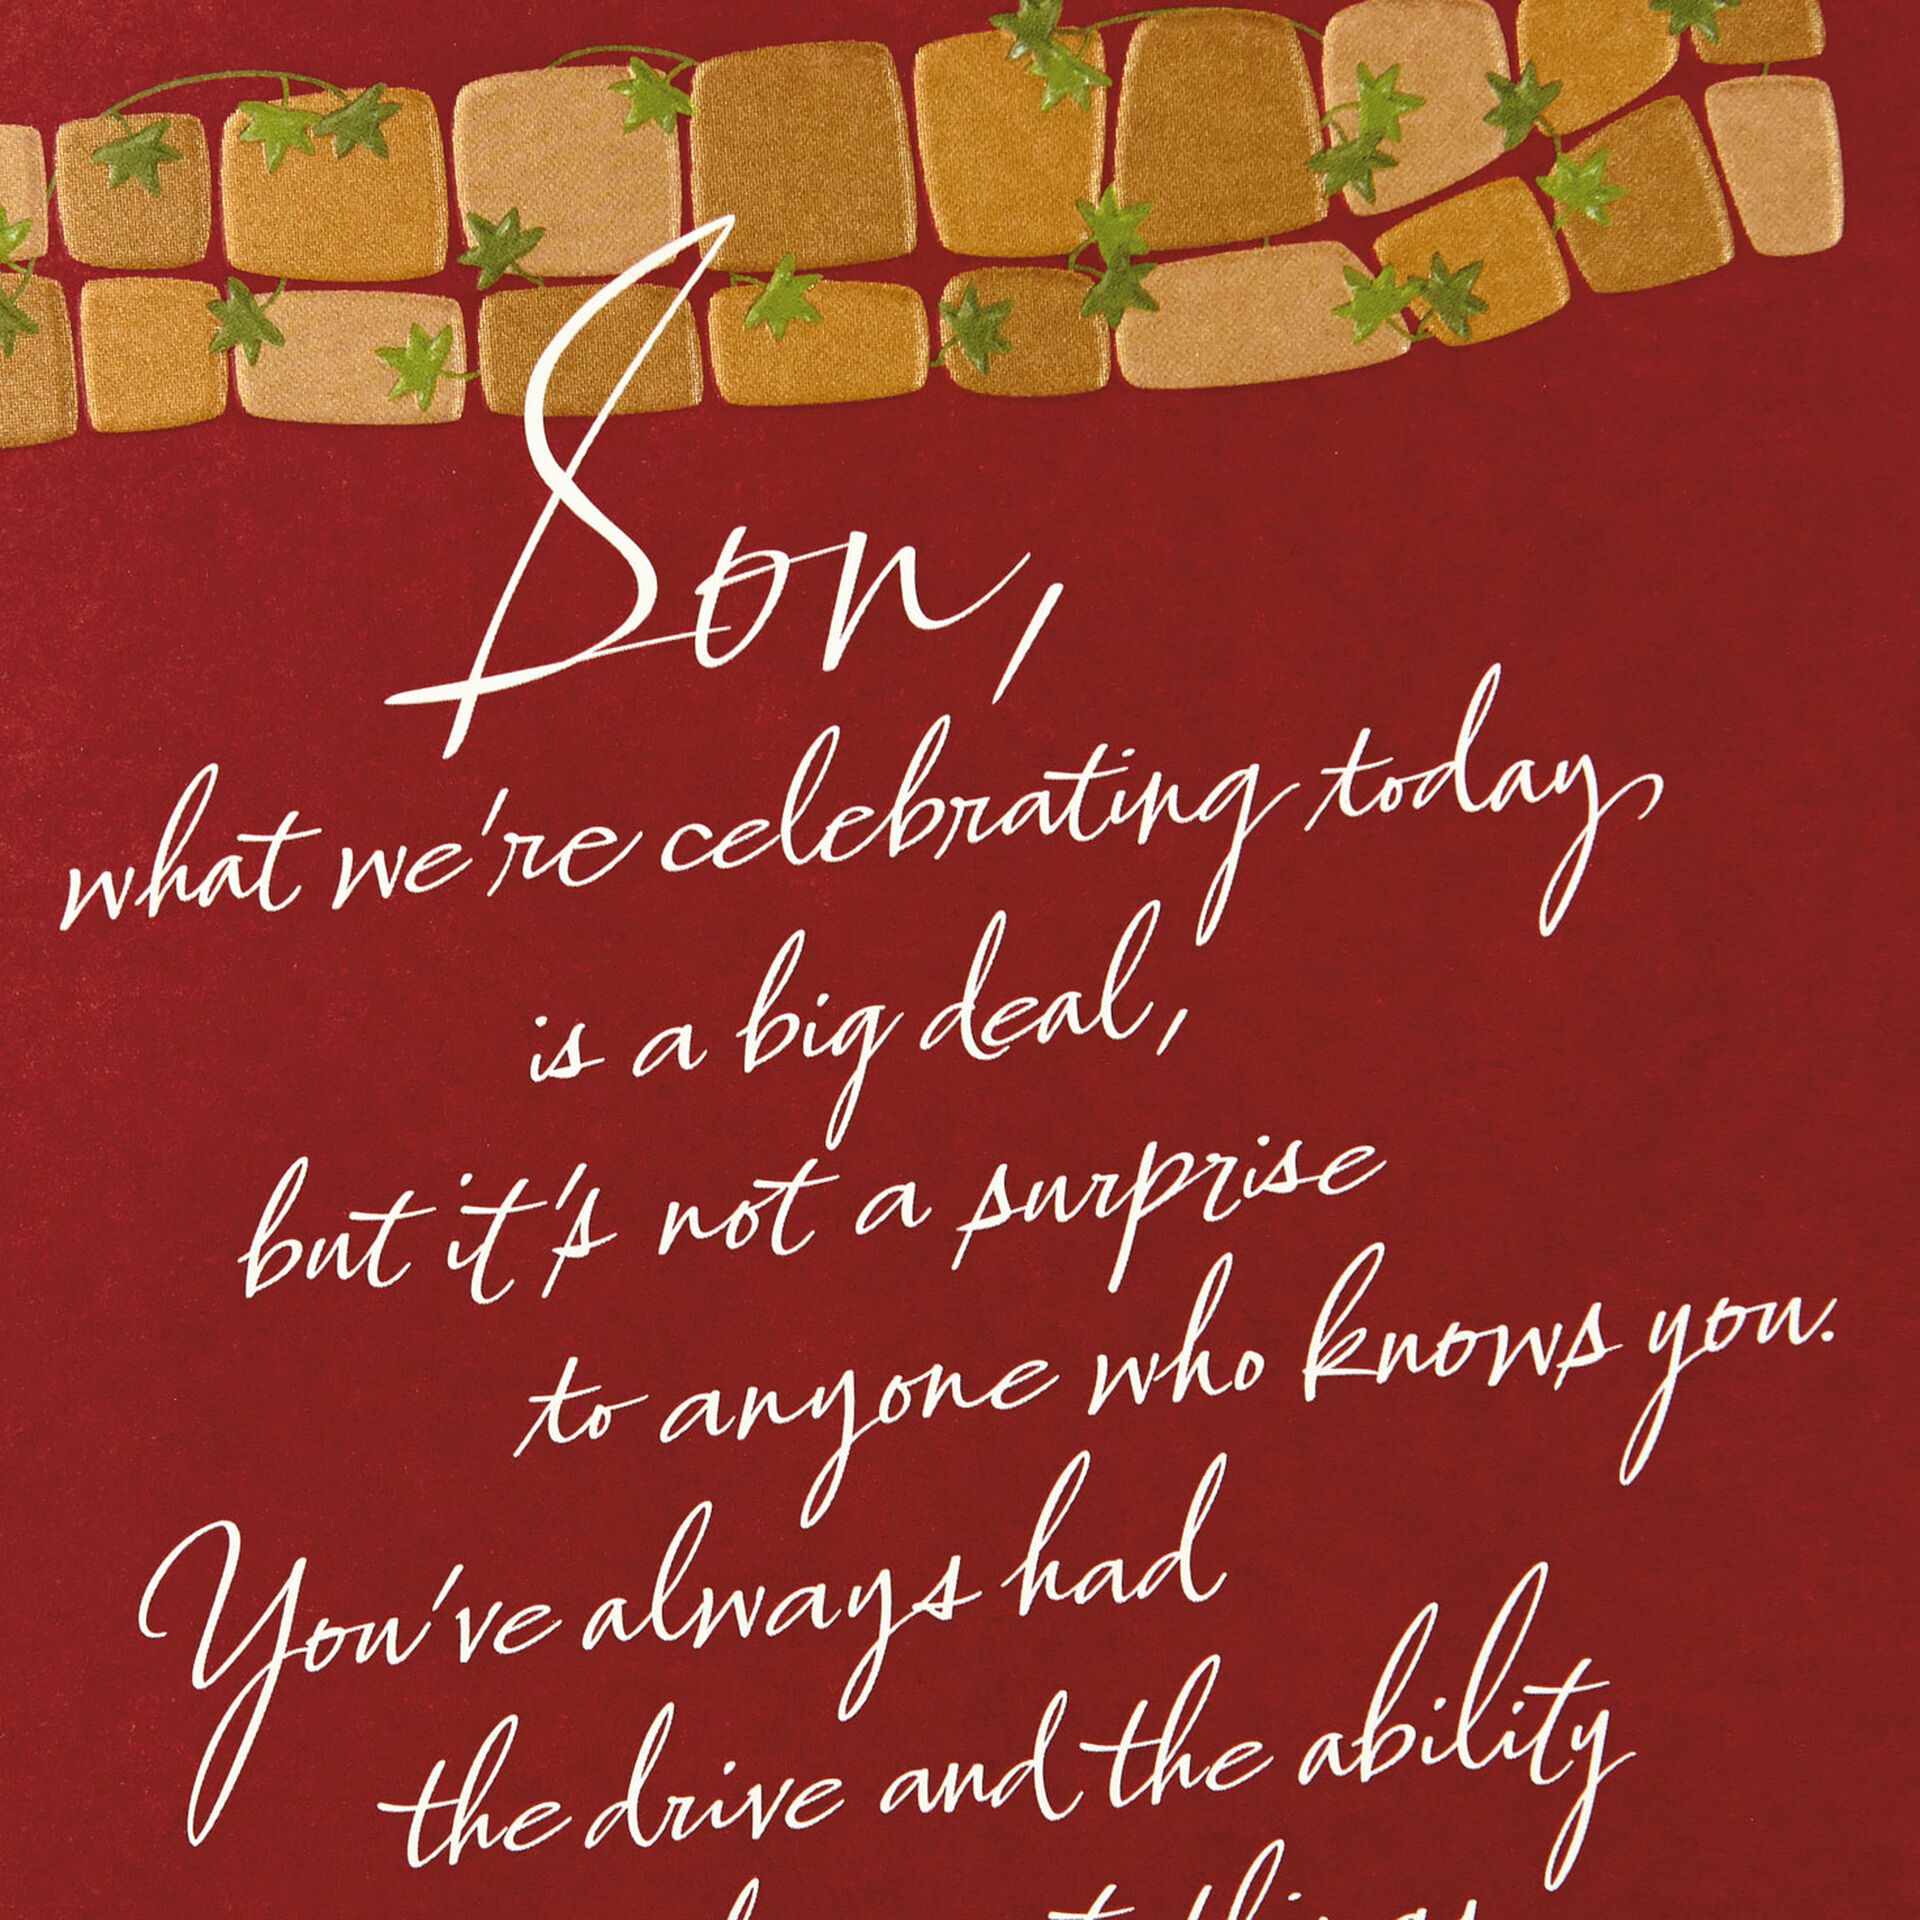 Son,
what we're celebrating today,
is a big deal,
but it's not a surprise
to anyone who knows you.
You've always had
the drive and the ability
things